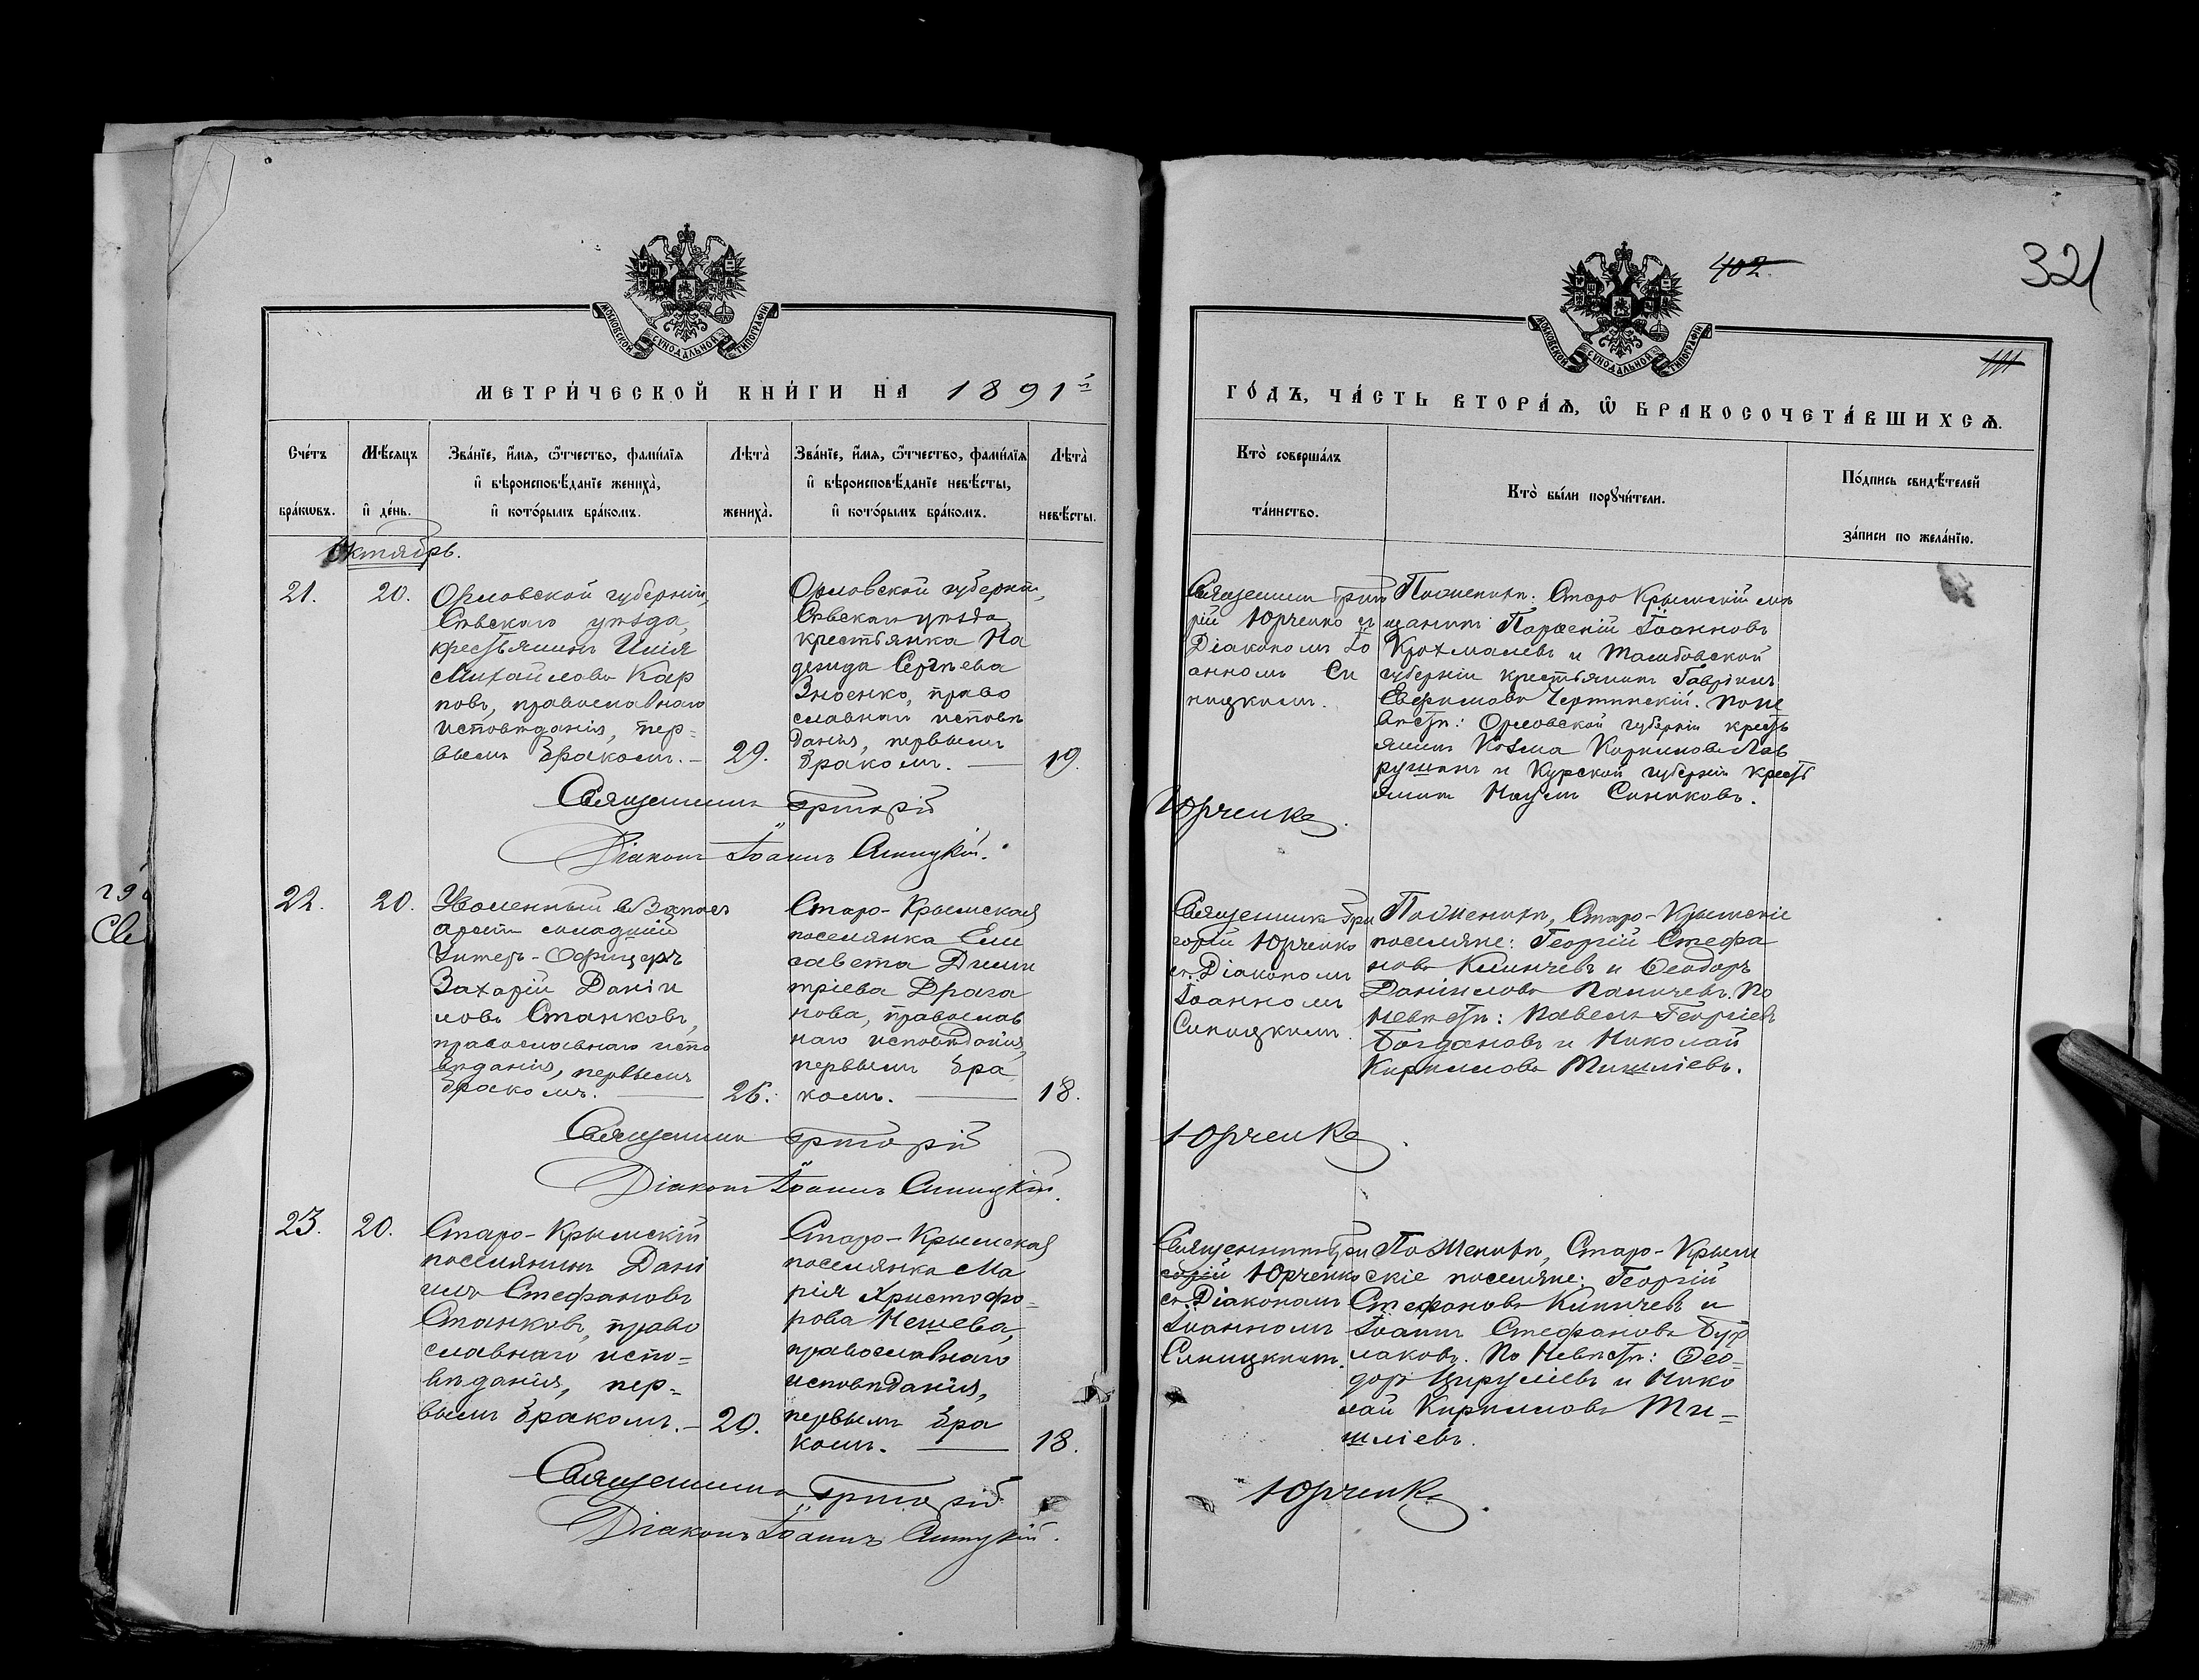 402.
321
МОСКОВСКОЙ СУНОДАЛЬНОЙ ТИПОГРАФІИ
МОСКОВСКОЙ СУНОДАЛЬНОЙ ТИПОГРАФІИ
МЕТРИ́ЧЕСКОЙ КНИ́ГИ НА 1891й
ГО́ДЪ, ЧА́СТЬ ВТОРА́Ѧ, Ѽ БРАКОСОЧЕТА́ВШИХСѦ.
Сче́тъ
бра́кѡвъ.
Мѣ́сяцъ
и҆ де́нь.
Зва́нїе, и҆́мѧ, ѻ҆́тчество, фами́лїя
и҆ вѣроисповѣ́данїе жениха̀,
и҆ кото́рымъ бра́комъ.
Лѣта̀
жениха̀.
Зва́нїе, и҆́мѧ, ѻ҆́тчество, фами́лїя
и҆ вѣроисповѣ́данїе невѣ́сты,
и҆ кото́рымъ бра́комъ.
Лѣта̀
невѣ́сты.
Кто̀ соверша́лъ
та́инство.
Кто̀ бы́ли порꙋчи́тели.
По́дпись свидѣ́телей
за́писи по жела́нїю.
Октябрь.
21.
20.
Орловской губерніи,
Сѣвскаго уѣзда,
крестьянинъ Илія
Михайловъ Кар
повъ, православнаго
исповѣданія, пер-
вымъ бракомъ.
29.
Орловской губерніи,
Сѣвскаго уѣзда,
крестьянка На
дежда Сергѣева
Зноенко, право
славнаго исповѣ
данія, первымъ
бракомъ.
19.
Священникъ Григо
рій Юрченко съ
Діакономъ Іо
анномъ Си
ницкимъ.
По женихѣ: Старо Крымскій мѣ
щанинъ Іоанновъ
Крохмалевъ и Тамбовской
губерніи крестьянинъ Гавріилъ
Евфимовъ По не
вѣстѣ: Орловской губерніи кресть
янинъ Козма Кириловъ Лав
рушинъ и Курской губерніи кресть
янинъ Наумъ Синиковъ.
Священникъ Григорій Юрченко.
Діаконъ Іоаннъ Синицкій.
22.
20.
Уволенный въ Запасъ
арміи младшій
Унтеръ-Офицеръ
Захарій Даніи
ловъ Станковъ,
православнаго испо
вѣданія, первымъ
бракомъ.
26.
Старо-Крымская
поселянка Ели
савета Дими
тріева Драга
нова, православ
наго исповѣданія,
первымъ бра
комъ.
18.
Священникъ Гри
горій Юрченко
съ Діакономъ
Іоанномъ
Синицкимъ.
По женихѣ, Старо-Крымскіе
поселяне: Георгій Стефа
новъ и Ѳеодоръ
Даніиловъ По
невѣстѣ: Павелъ Георгіевъ
Богдановъ и Николай
Кирилловъ Тишліевъ.
Священникъ Григорій Юрченко.
Діаконъ Іоаннъ Синицкій.
23.
20.
Старо-Крымскій
поселянинъ Дані
илъ Стефановъ
Станковъ, право
славнаго испо-
вѣданія, пер-
вымъ бракомъ.
20.
Старо-Крымская
поселянка Ма
рія Христофо-
рова Нешева,
православнаго
исповѣданія,
первымъ бра
комъ.
18.
Священникъ Гри
горій Юрченко
съ Діакономъ
Іоанномъ
Синицкимъ.
По Женихѣ, Старо-Крым
скіе поселяне: Георгій
Стефановъ и
Іоаннъ Стефановъ Бур
лаковъ. По Невѣстѣ: Ѳео-
доръ Цируліевъ и Нико
лай Кирилловъ Ти-
шліевъ.
Священникъ Григорій Юрченко.
Діаконъ Іоаннъ Синицкій.